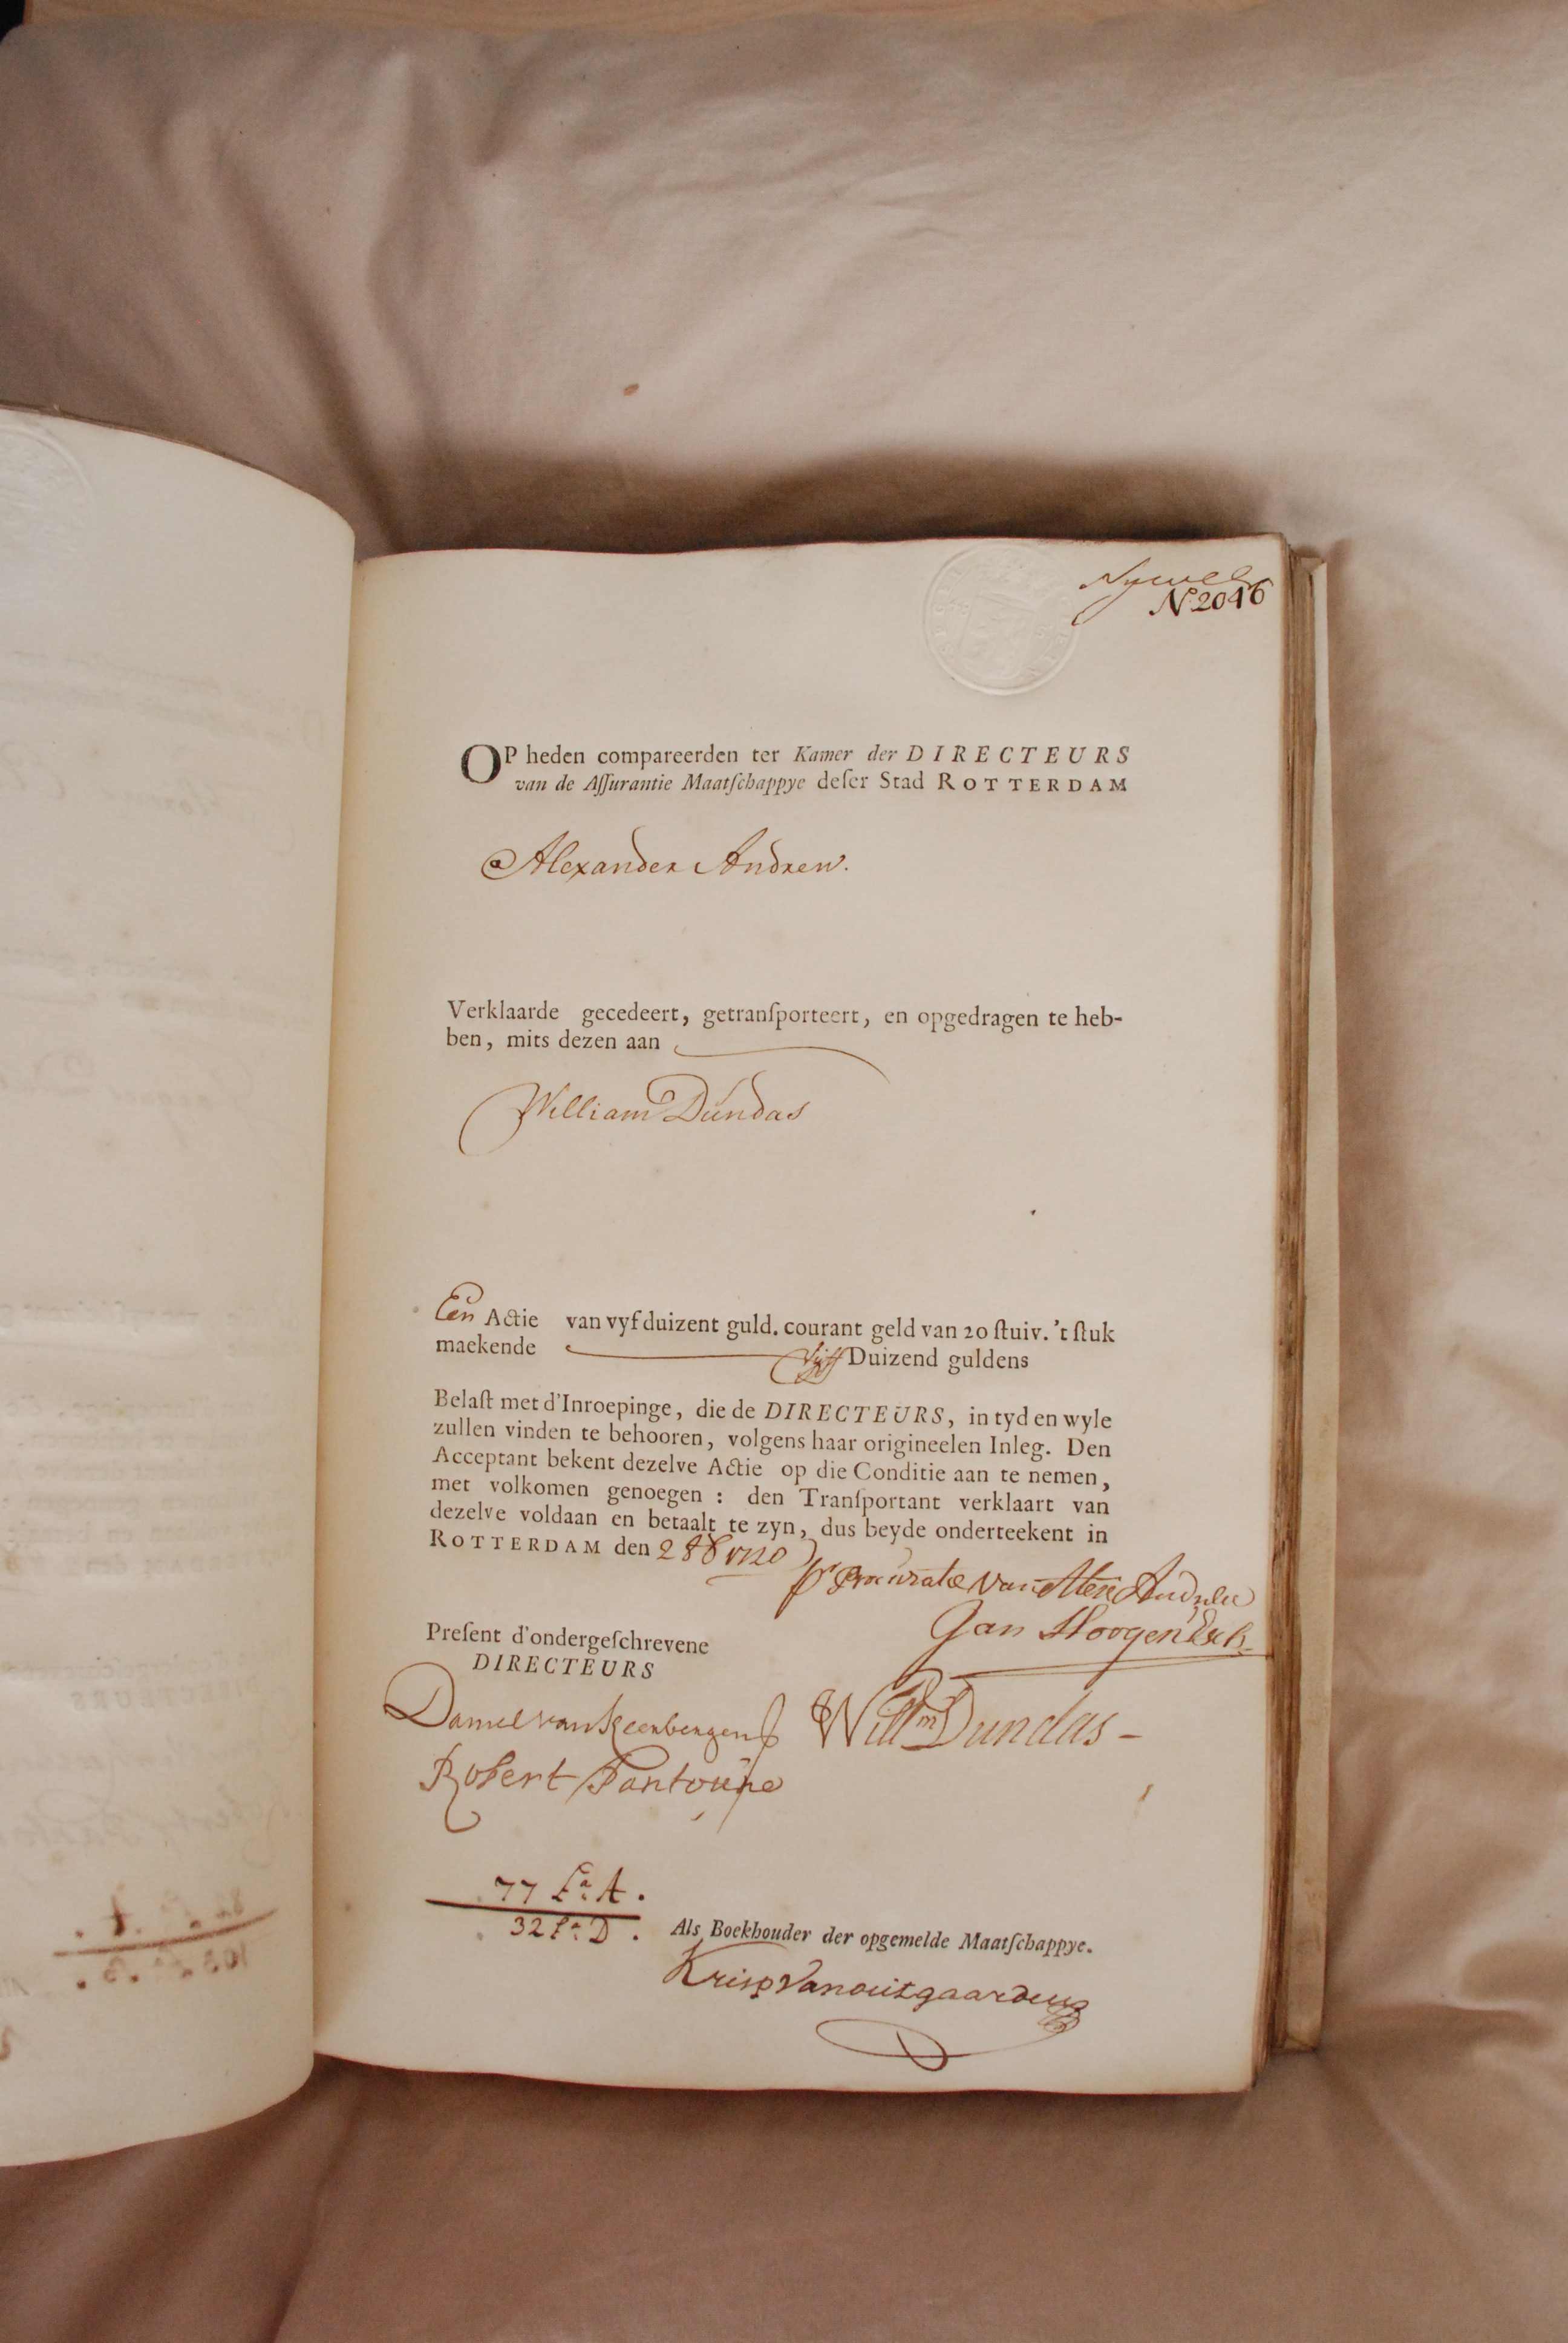 Nywel
Nº 2046
OP heden compareerden ter Kamer der DIRECTEURS
van de Aſſurantie Maatſchappye deſer Stad ROTTERDAM
Alexander Andrew.
Verklaarde gecedeert, getranſporteert, en opgedragen te heb-
ben, mits dezen aan
William Dúndas
Een Actie van vyf duizent guld. courant geld van 20 ſtuiv. 't ſtuk
maekende Vijff Duizend guldens
Belaſt met d'Inroepinge, die de DIRECTEURS, in tyd en wyle
zullen vinden te behooren, volgens haar origineelen Inleg. Den
Acceptant bekent dezelve Actie op die Conditie aan te nemen,
met volkomen genoegen : den Tranſportant verklaart van
dezelve voldaan en betaalt te zyn, dus beyde onderteekent in
ROTTERDAM den 2 8b 1720
pr procuratie van Alexr Andrew
Jan Hoogenbergh
Preſent d'ondergeſchrevene
DIRECTEURS
Daniel van Keenbergen
Willm Dundas
Robert Santoúne
77 Lª A.
32 Lª D.
Als Boekhouder der opgemelde Maatſchappye.
Krisp Vanoutgaarden